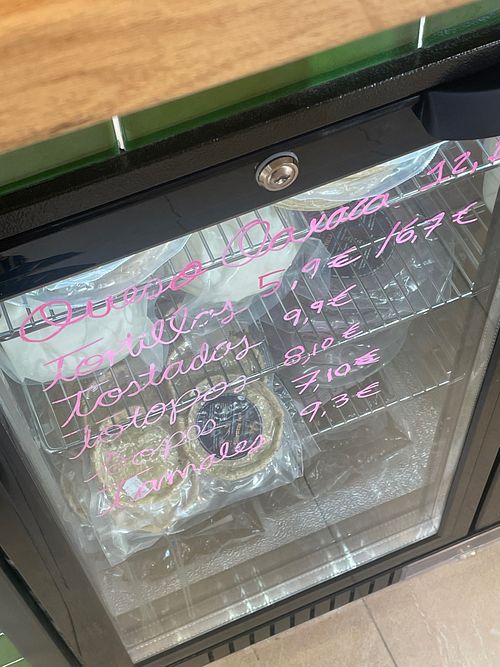 Queso Oaxaca 12,
Tortillas 5,9€ /6,7€
Tostadas 9,9€
totopos 8,10€
Sopes 7,10€
Tamales 9,3€